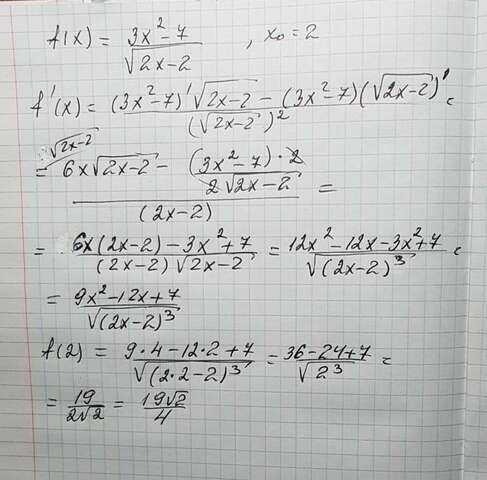 f(x) = (3x² - 7) / √(2x-2) , x₀ = 2
f'(x) = ((3x²-7)'√(2x-2) - (3x²-7)(√(2x-2))') / (√(2x-2))² =
= (6x√(2x-2) - ((3x²-7)·2) / (2√(2x-2))) / (2x-2) = √(2x-2)
= (6x(2x-2) - 3x²+7) / ((2x-2)√(2x-2)) = (12x²-12x-3x²+7) / √((2x-2)³) =
= (9x²-12x+7) / √((2x-2)³)
f(2) = (9·4-12·2+7) / √((2·2-2)³) = (36-24+7) / √(2³) =
= 19 / (2√2) = 19√2 / 4